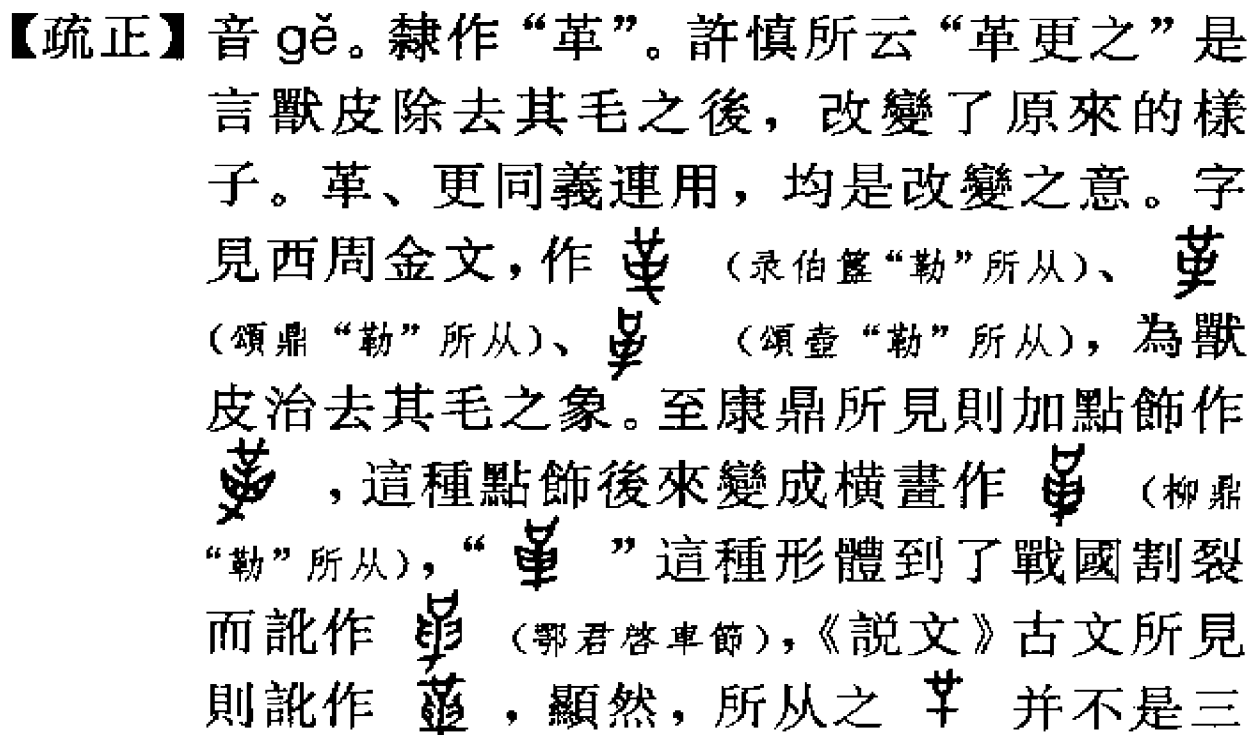 【疏正】音gě。隸作“革”。許慎所云“革更之”是
言獸皮除去其毛之後，改變了原來的樣
子。革、更同義連用，均是改變之意。字
見西周金文，作（录伯簋“勒”所从）、
（頌鼎“勒”所从）、（頌壺“勒”所从），為獸
皮治去其毛之象。至康鼎所見則加點飾作
，這種點飾後來變成橫畫作（柳鼎
“勒”所从），“”這種形體到了戰國割裂
而訛作（鄂君啓車節），《説文》古文所見
則訛作，顯然，所从之并不是三